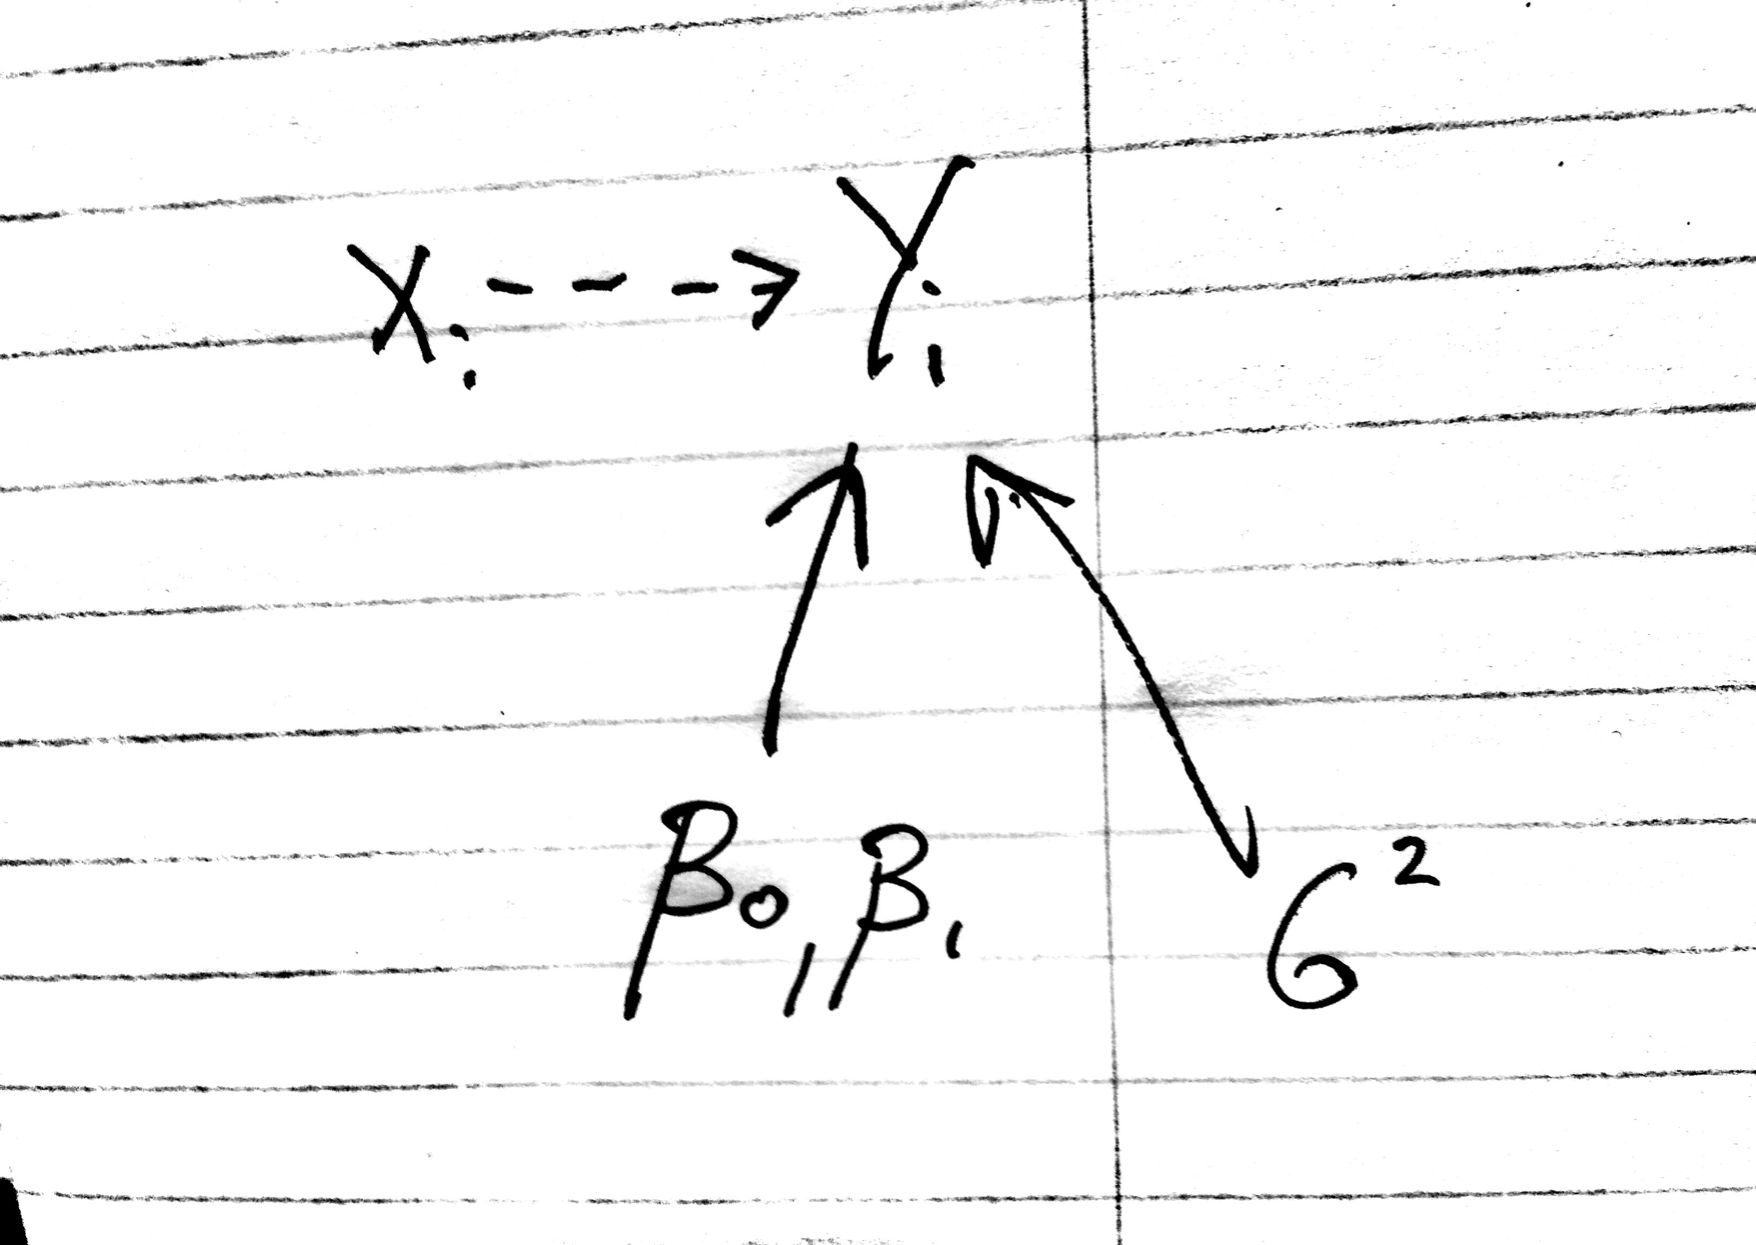 Xi - - -> Yi
β0, β1 σ²